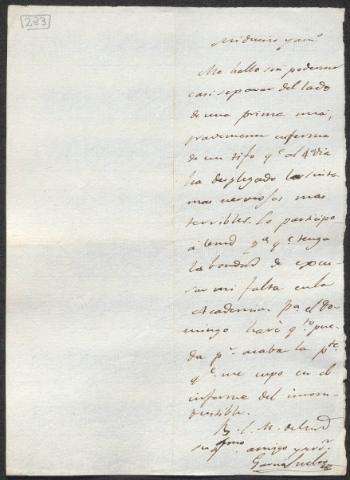 223
Mi dueño y am.º
Me hallo sin poderme
casi separar del lado
de una prima mia,
gravemente enferma
de un tifo q.e al 4.º dia
ha desplegado los sinto
mas nerviosos mas
terribles. Lo participo
a p.a q.e tenga
la bondad de excu-
sar mi falta en la
Academia. Pa. el do-
mingo haré q.to pue-
da p.r acabar la p.te
q.e me cupo en el
informe del incom-
bustible.
B. L. M. de
su amigo y
Garcia Suelto